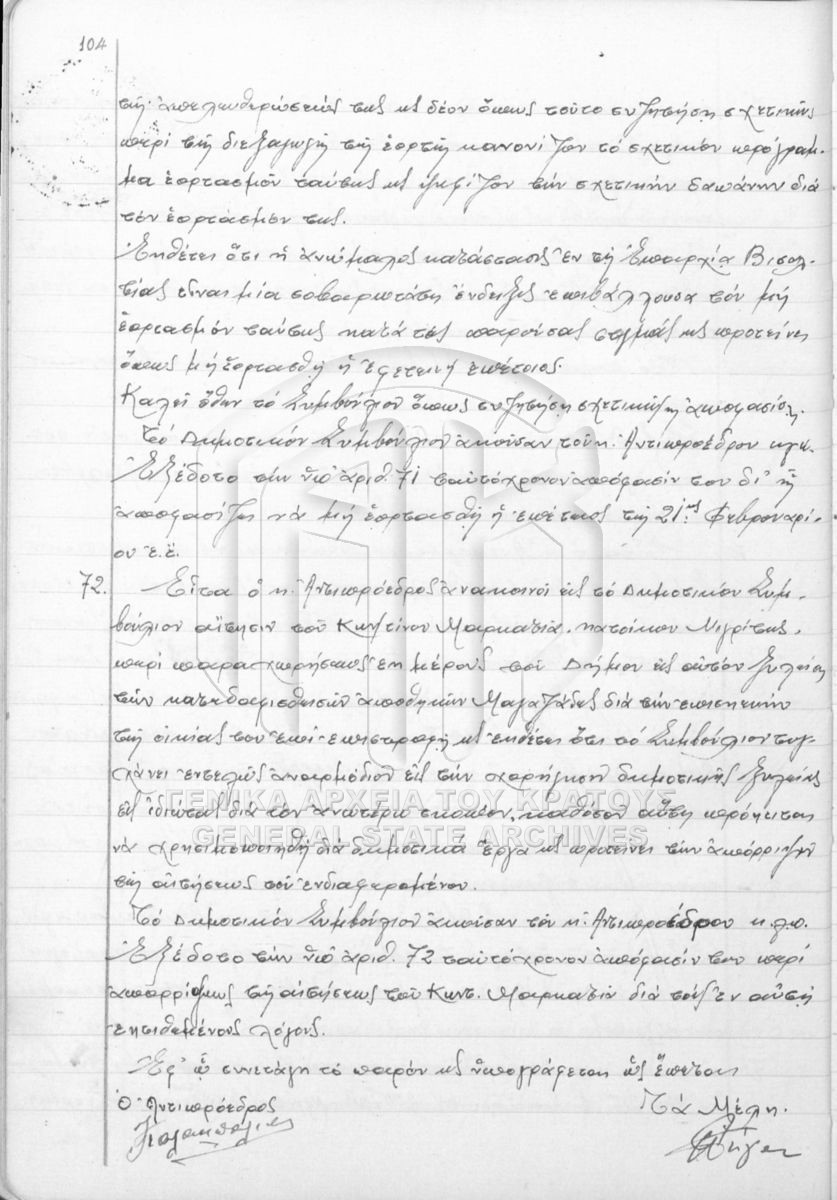 104
τῆς ἀπελευθερώσεώς της κ δέον ὅπως τοῦτο συζητήση σχετικῶς
περί τῆς διεξαγωγῆς τῆς ἑορτῆς κανονίζον τό σχετικόν πρόγραμ-
μα ἑορτασμοῦ ταύτης κ ψηφίζον τήν σχετικήν δαπάνην διά
τόν ἑορτασμόν της.
Ἐκθέτει ὅτι ἡ ἀνώμαλος κατάστασις ἐν τῇ Ἐπαρχίᾳ Βισαλ-
τίας εἶναι μία σοβαρωτάτη ἔνδειξις ἐπιβάλλουσα τόν μή
ἑορτασμόν ταύτης κατά τάς παρούσας στιγμάς κ προτείνει
ὅπως μή ἑορτασθῇ ἡ ἐφετεινή ἐπέτειος.
Καλεῖ ὅθεν τό Συμβούλιον ὅπως συζητήση σχετικῶς κ ἀποφασίση.
Τό Δημοτικόν Συμβούλιον ἀκοῦσαν τοῦ κ. Ἀντιπροέδρου κλπ.
Ἐξέδοτο τήν ὑπ' ἀριθ. 71 ταυτόχρονον ἀπόφασίν του δι' ἧς
ἀποφασίζει νά μή ἑορτασθῇ ἡ ἐπέτειος τῆς 21ης Φεβρουαρί-
ου ἐ.ἔ.
72. Εἶτα ὁ κ. Ἀντιπρόεδρος ἀνακοινοῖ εἰς τό Δημοτικόν Συμ-
βούλιον αἴτησιν τοῦ Κων/τίνου Μαρκατζιᾶ, κατοίκου Νιγρίτης,
περί παραχωρήσεως ἐκ μέρους τοῦ Δήμου εἰς αὐτόν ξυλείας
τῶν κατεδαφισθεισῶν ἀποθηκῶν Μαγαζάδες διά τήν ἐπισκευήν
τῆς οἰκίας του ἐπί ἐπιστροφῇ κ ἐκθέτει ὅτι τό Συμβούλιον τυγ-
χάνει ἐντελῶς ἀναρμόδιον εἰς τήν χορήγησιν δημοτικῆς ξυλείας
εἰς ἰδιώτας διά τόν ἀνωτέρω σκοπόν, καθόσον αὕτη πρόκειται
ΓΕΝΙΚΑ ΑΡΧΕΙΑ ΤΟΥ ΚΡΑΤΟΥΣ
GENERAL STATE ARCHIVES
νά χρησιμοποιηθῇ διά δημοτικά ἔργα κ προτείνει τήν ἀπόρριψιν
τῆς αἰτήσεως τοῦ ἐνδιαφερομένου.
Τό Δημοτικόν Συμβούλιον ἀκοῦσαν τοῦ κ. Ἀντιπροέδρου κ.λ.π.
Ἐξέδοτο τήν ὑπ' ἀριθ. 72 ταυτόχρονον ἀπόφασίν του περί
ἀπορρίψεως τῆς αἰτήσεως τοῦ Κωνστ. Μαρκατζιᾶ διά τούς ἐν αὐτῇ
ἐκτιθεμένους λόγους.
Ἐφ' ᾧ συνετάγη τό παρόν κ ὑπογράφεται ὡς ἕπεται
Ὁ Ἀντιπρόεδρος Τά Μέλη.